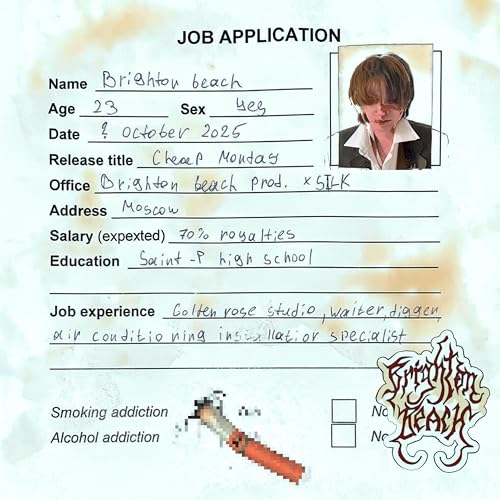 JOB APPLICATION
Name Brighton beach
Age 23 Sex yes
Date 2 october 2025
Release title Cheap Monday
Office Brighton beach prod. x SILK
Address Moscow
Salary (expexted) 70% royalties
Education Saint-P high school
Job experience Golten rose studio, waiter, digger
air conditioning installatior specialist
Brighton
Beach
Smoking addiction No
Alcohol addiction No